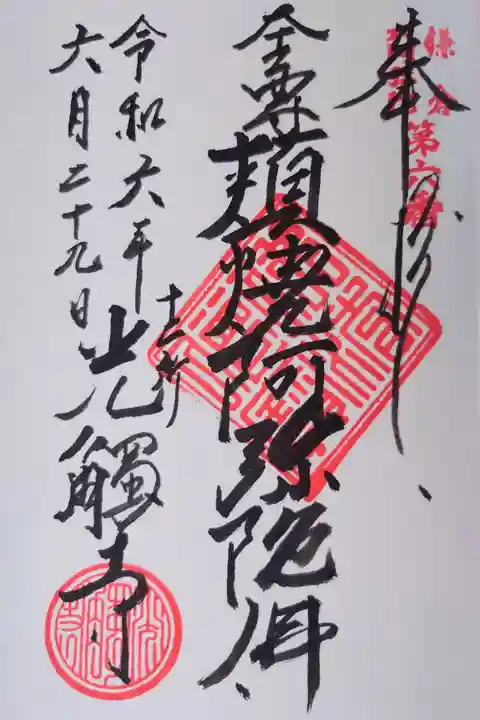 奉拝
鎌倉
第六番
本尊頬焼阿弥陀佛
十二所
光觸寺
令和六年
六月二十九日